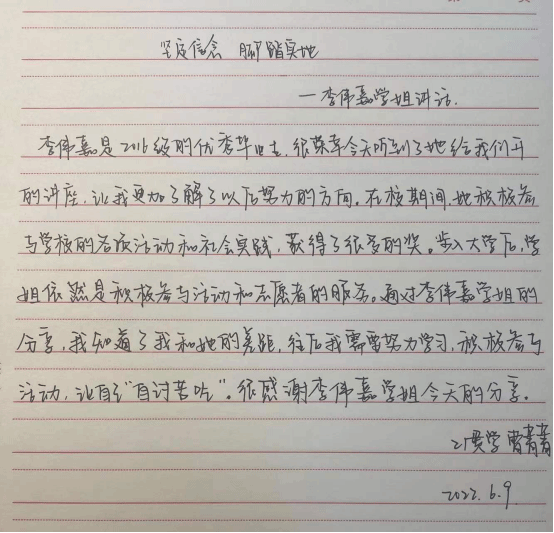 坚定信念 脚踏实地
—李伟嘉学姐讲话.
李伟嘉是2016级的优秀毕业生,很荣幸今天听到了她给我们开
的讲座,让我更加了解了以后努力的方向。在校期间,她积极参
与学校的各项活动和社会实践,获得了很多的奖。步入大学后,学
姐依然是积极参与活动和志愿者的服务。通过李伟嘉学姐的
分享,我知道了我和她的差距,往后我需要努力学习,积极参与
活动,让自己"自讨苦吃"。很感谢李伟嘉学姐今天的分享.
曹菁菁
2022.6.9